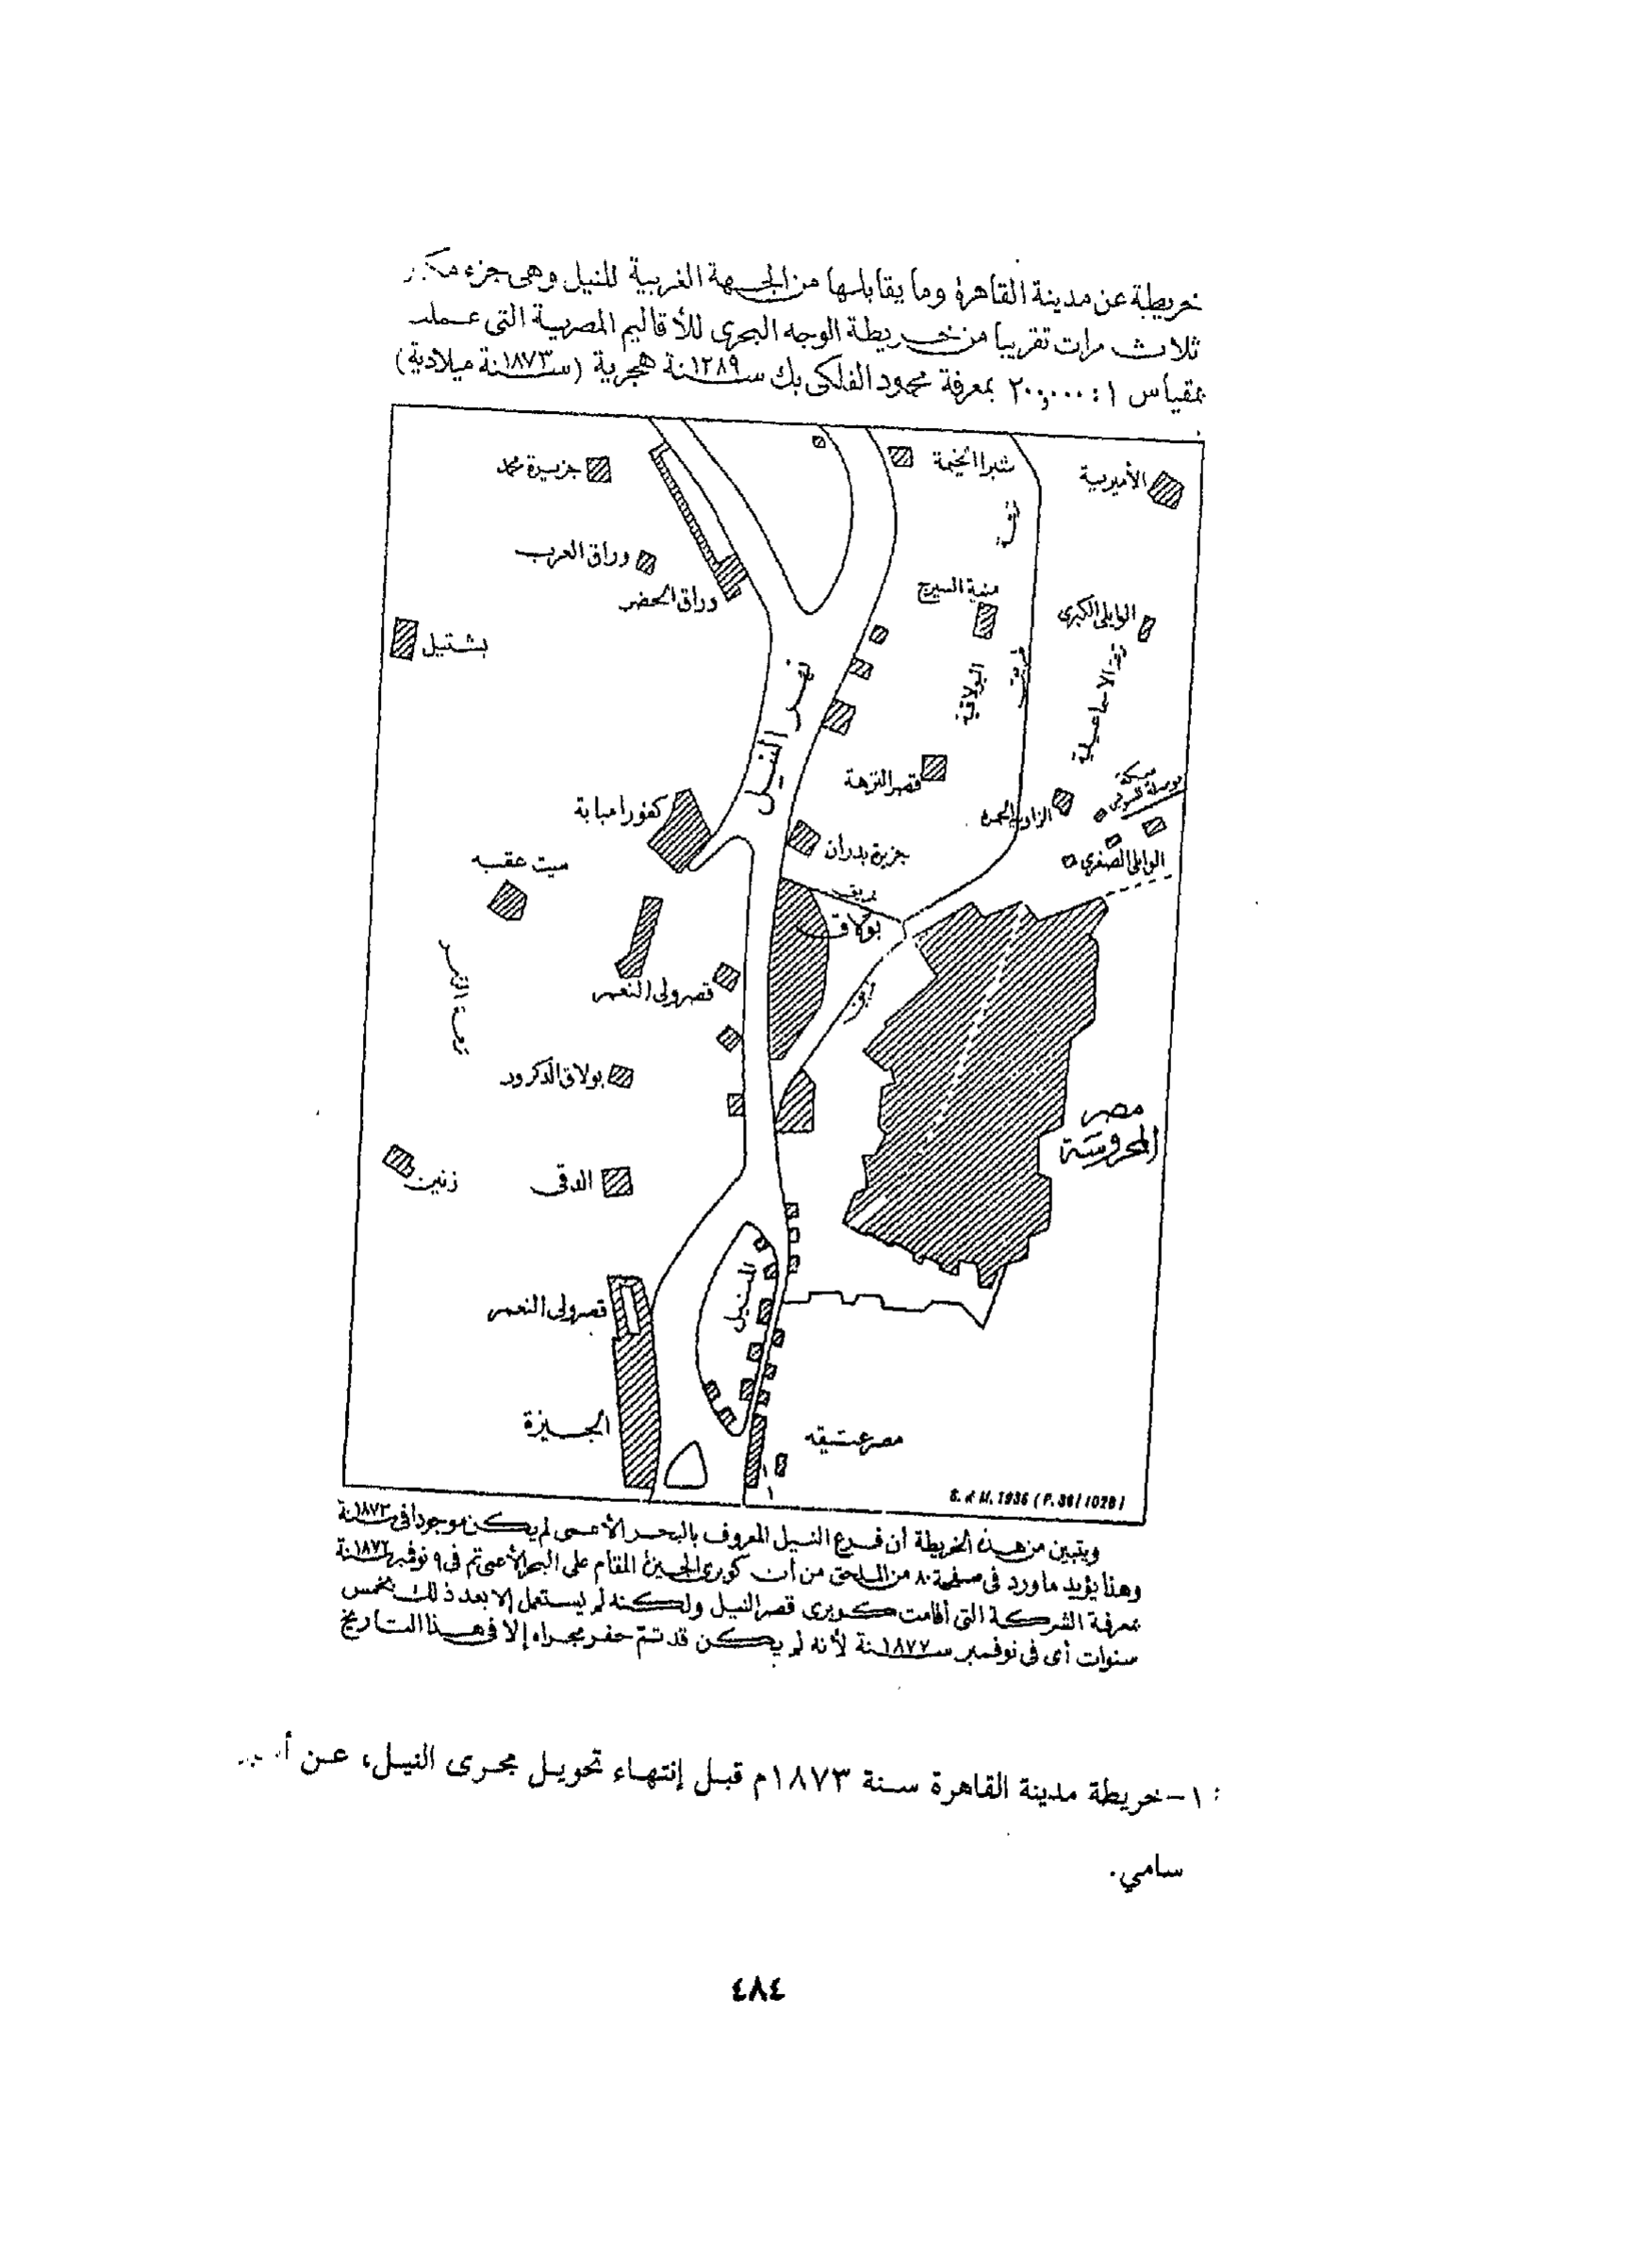 خريطة عن مدينة القاهرة وما يقابلها من الجهة الغربية للنيل وهى جزء مكبر
ثلاث مرات تقريبا من خريطة الوجه البحرى للأقاليم المصرية التى عملت
بمقياس ١ : ٢٠٠,٠٠٠ بمعرفة محمود الفلكى بك سنة ١٢٨٩ هجرية (سنة ١٨٧٣ ميلادية)
جزيرة محمد
شبرا الخيمة
الأميرية
وراق العرب
وراق الحضر
ترعة
منية السيرج
الوايلى الكبرى
بشتيل
نهر النيل
البولاقية
ترعة الاسماعيلية
قصر النزهة
سكة
الزاوية الحمره
كفور امبابة
جزيرة بدران
الوايلى الصغرى
ميت عقبه
بولاق
قصر ولى النعم
ترعة
بولاق الدكرور
مصر
المحروسة
زنين
الدقى
المنيل
قصر ولى النعم
الجيزة
مصر عتيقه
S. of M. 1936 (P. 36/1028)
ويتبين من هذه الخريطة أن فرع النيل المعروف بالبحر الأعمى لم يكن موجودا فى سنة ١٨٧٣
وهذا يؤيد ما ورد فى صفحة ٨٠ من الملحق من أن كوبرى الجيزة المقام على البحر الأعمى تم فى ٩ نوفمبر سنة ١٨٧٢
بمعرفة الشركة التى أقامت كوبرى قصر النيل ولكنه لم يستعمل إلا بعد ذلك بخمس
سنوات أى فى نوفمبر سنة ١٨٧٧ لأنه لم يكن قد تم حفر مجراه إلا فى هذا التاريخ
١- خريطة مدينة القاهرة سنة ١٨٧٣م قبل إنتهاء تحويل مجرى النيل، عن
سامي.
٤٨٤